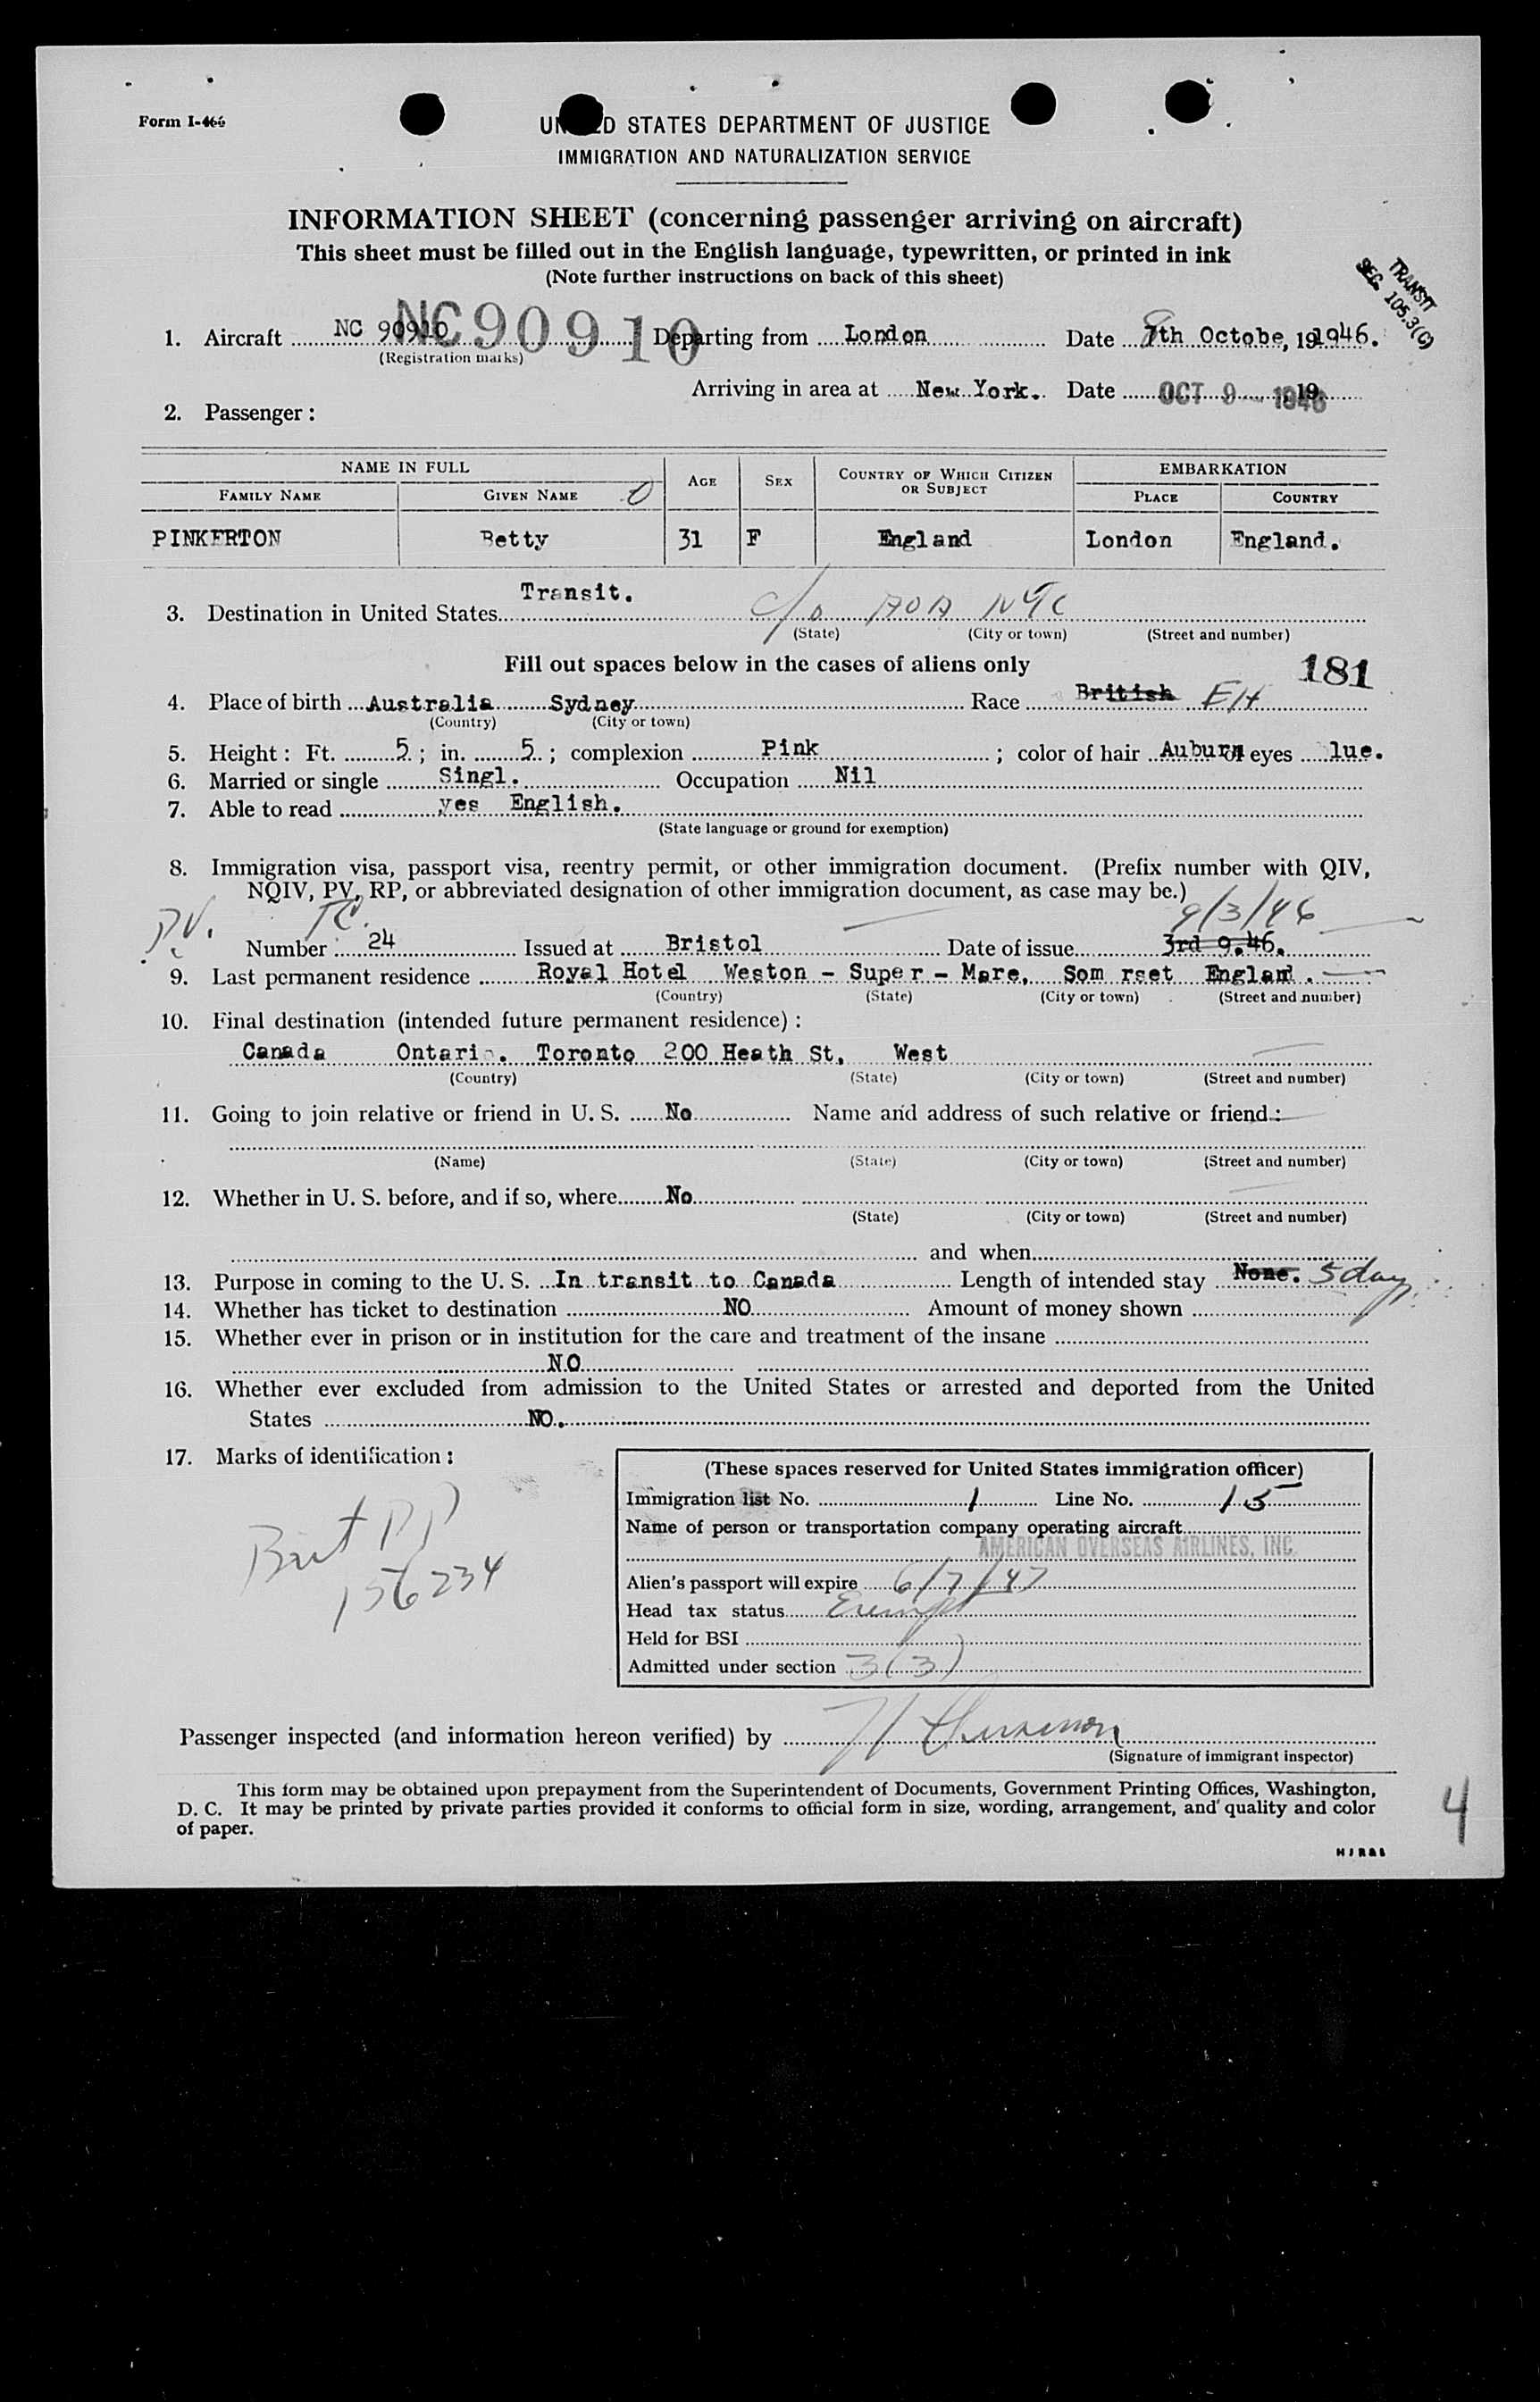 Form I-466
UNITED STATES DEPARTMENT OF JUSTICE
IMMIGRATION AND NATURALIZATION SERVICE
INFORMATION SHEET (concerning passenger arriving on aircraft)
This sheet must be filled out in the English language, typewritten, or printed in ink
(Note further instructions on back of this sheet)
TRANSIT
SEC. 105.3(C)
1. Aircraft NC 90910 NC90910 Departing from London Date 7th Octobe, 19 1946.
(Registration marks)
Arriving in area at New York. Date OCT 9 1946 19
2. Passenger:
NAME IN FULL AGE SEX COUNTRY OF WHICH CITIZEN OR SUBJECT EMBARKATION
FAMILY NAME GIVEN NAME PLACE COUNTRY
PINKERTON Betty 31 F England London England.
Transit.
3. Destination in United States c/o AOA NYC
(State) (City or town) (Street and number)
Fill out spaces below in the cases of aliens only 181
4. Place of birth Australia Sydney Race British
(Country) (City or town)
5. Height: Ft. 5; in. 5; complexion Pink; color of hair Auburn eyes lue.
6. Married or single Singl. Occupation Nil
7. Able to read yes English.
(State language or ground for exemption)
8. Immigration visa, passport visa, reentry permit, or other immigration document. (Prefix number with QIV,
NQIV, PV, RP, or abbreviated designation of other immigration document, as case may be.)
P.V. 9/3/46
Number 24 Issued at Bristol Date of issue 3rd 9.46.
9. Last permanent residence Royal Hotel Weston - Super - Mare, Som rset England.
(Country) (State) (City or town) (Street and number)
10. Final destination (intended future permanent residence):
Canada Ontario. Toronto 200 Heath St, West
(Country) (State) (City or town) (Street and number)
11. Going to join relative or friend in U. S. No Name and address of such relative or friend:
(Name) (State) (City or town) (Street and number)
12. Whether in U. S. before, and if so, where No
(State) (City or town) (Street and number)
and when
13. Purpose in coming to the U. S. In transit to Canada Length of intended stay None. 5 days
14. Whether has ticket to destination NO Amount of money shown
15. Whether ever in prison or in institution for the care and treatment of the insane
NO
16. Whether ever excluded from admission to the United States or arrested and deported from the United
States NO.
17. Marks of identification:
Brit PP
156234
(These spaces reserved for United States immigration officer)
Immigration list No. 1 Line No. 15
Name of person or transportation company operating aircraft
AMERICAN OVERSEAS AIRLINES, INC.
Alien's passport will expire 6/7/47
Head tax status Exempt
Held for BSI
Admitted under section 3(3)
Passenger inspected (and information hereon verified) by
(Signature of immigrant inspector)
This form may be obtained upon prepayment from the Superintendent of Documents, Government Printing Offices, Washington,
D. C. It may be printed by private parties provided it conforms to official form in size, wording, arrangement, and quality and color
of paper.
4